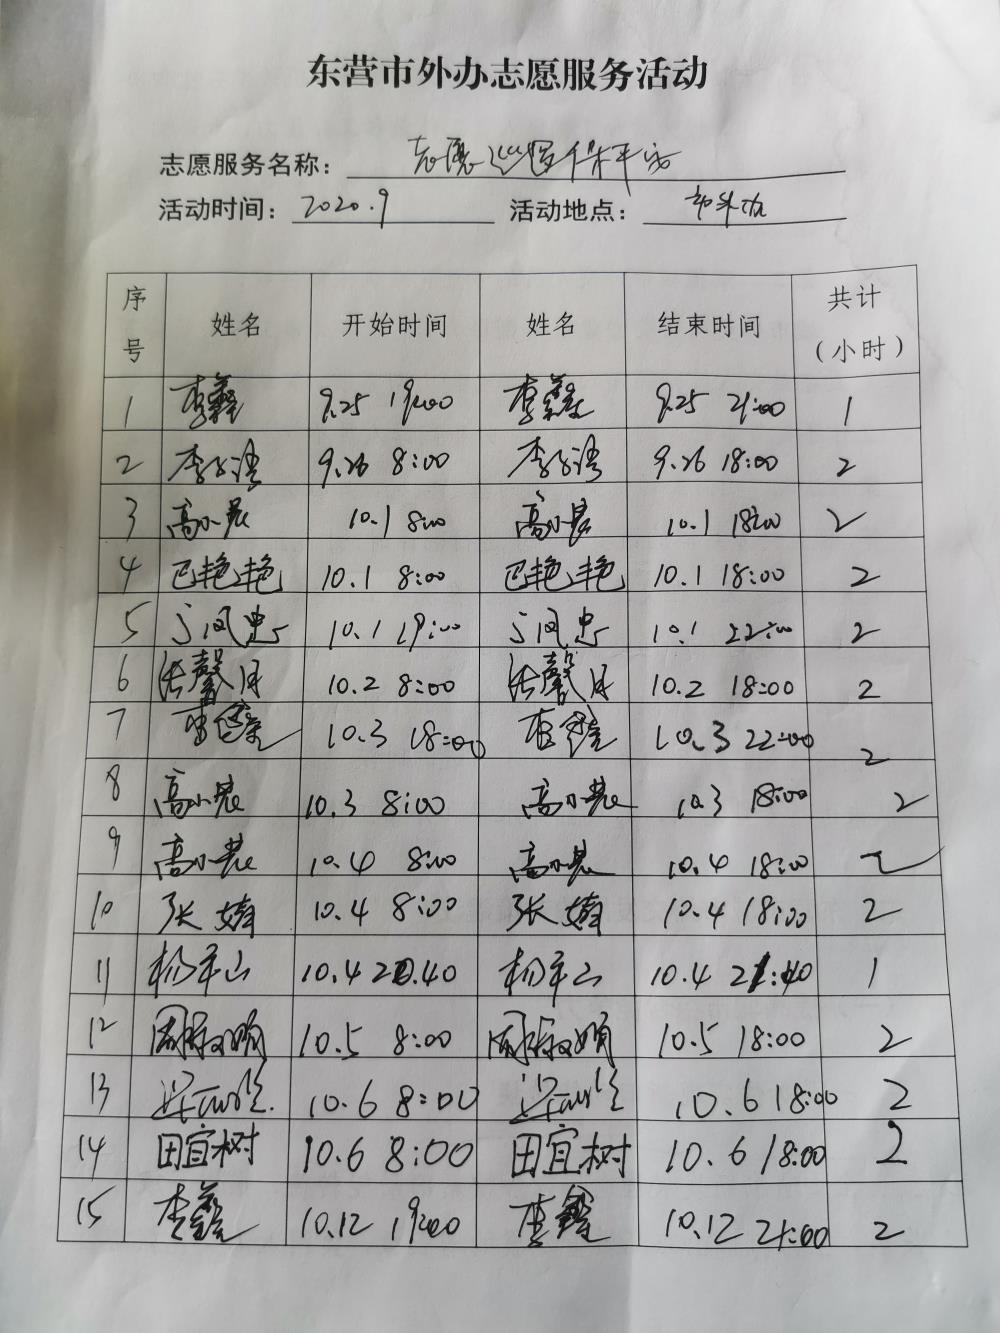 东营市外办志愿服务活动
志愿服务名称：志愿巡逻保平安
活动时间：2020.9 活动地点：市外办
序号 姓名 开始时间 姓名 结束时间 共计（小时）
1 李鑫 9.25 19:00 李鑫 9.25 21:00 1
2 9.26 8:00 9.26 18:00 2
3 高小晨 10.1 8:00 高小晨 10.1 18:00 2
4 巴艳艳 10.1 8:00 巴艳艳 10.1 18:00 2
5 10.1 19:00 10.1 22:00 2
6 张馨月 10.2 8:00 张馨月 10.2 18:00 2
7 10.3 18:00 10.3 22:00 2
8 高小晨 10.3 8:00 高小晨 10.3 18:00 2
9 高小晨 10.4 8:00 高小晨 10.4 18:00 2
10 张婧 10.4 8:00 张婧 10.4 18:00 2
11 杨军山 10.4 20.40 杨军山 10.4 21:40 1
12 10.5 8:00 10.5 18:00 2
13 10.6 8:00 10.6 18:00 2
14 田宜树 10.6 8:00 田宜树 10.6 18:00 2
15 李鑫 10.12 19:00 李鑫 10.12 21:00 2